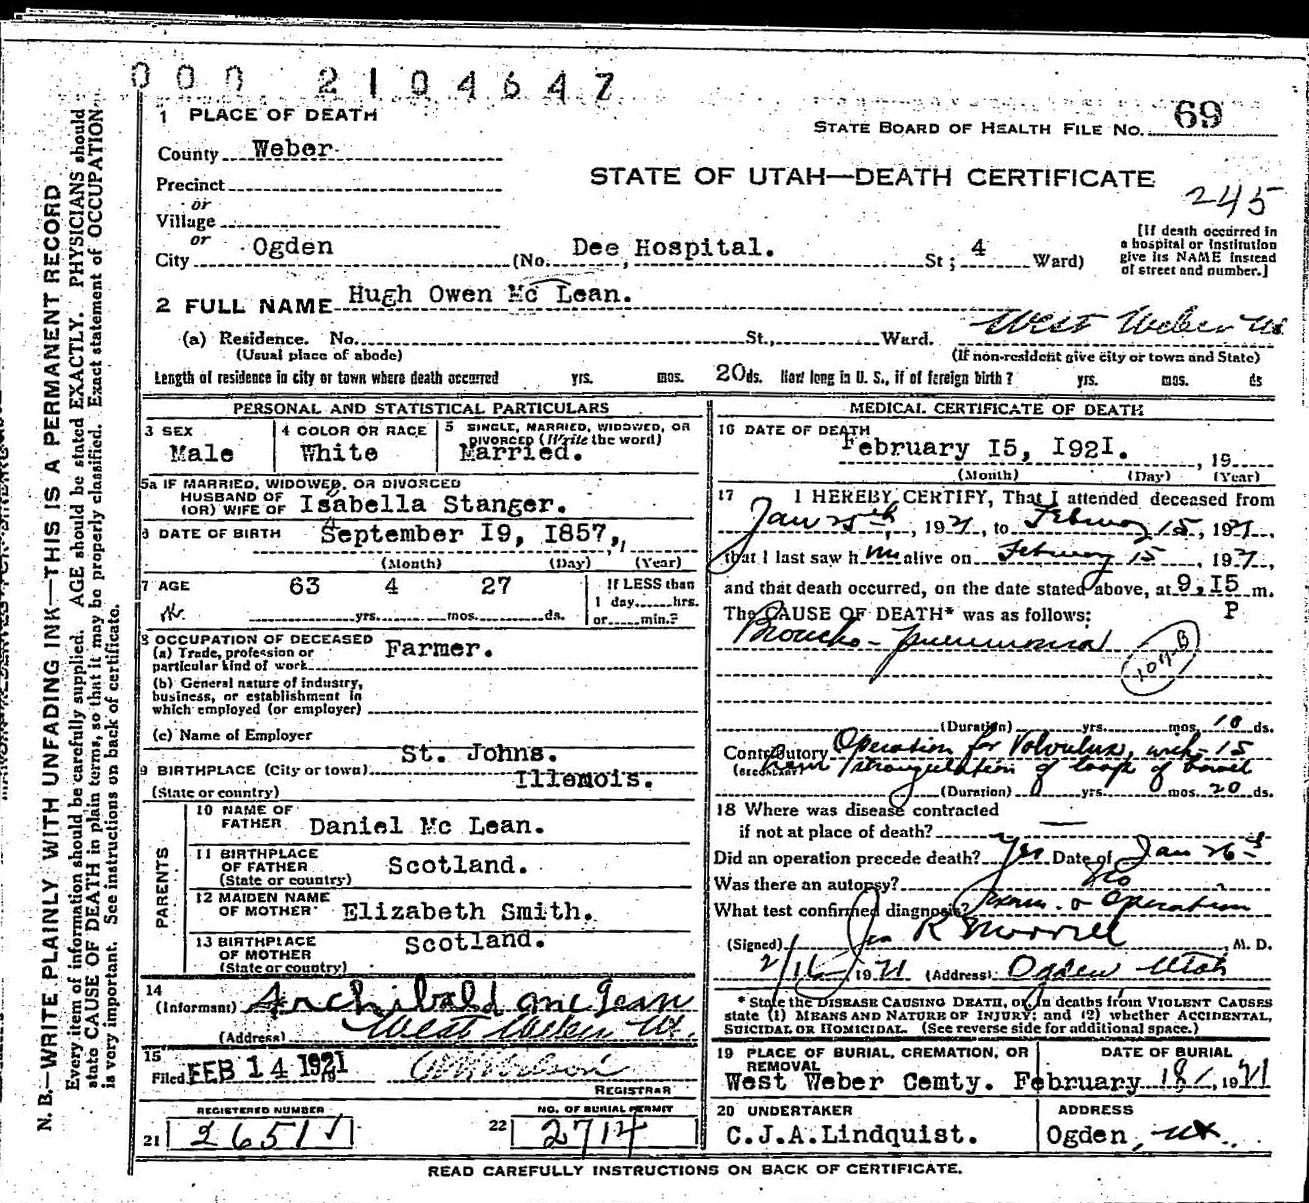 000 2104647
1 PLACE OF DEATH
STATE BOARD OF HEALTH FILE NO. 69
County Weber.
STATE OF UTAH—DEATH CERTIFICATE
245
Precinct
or
Village
or
City Ogden (No. Dee Hospital. St; 4 Ward)
[If death occurred in
a hospital or institution
give its NAME instead
of street and number.]
2 FULL NAME Hugh Owen Mc Lean.
(a) Residence. No. St., Ward. West Weber Ut
(Usual place of abode) (If non-resident give city or town and State)
Length of residence in city or town where death occurred yrs. mos. 20 ds. How long in U. S., if of foreign birth? yrs. mos. ds
PERSONAL AND STATISTICAL PARTICULARS
3 SEX
Male
4 COLOR OR RACE
White
5 SINGLE, MARRIED, WIDOWED, OR
DIVORCED (Write the word)
Married.
5a IF MARRIED, WIDOWED, OR DIVORCED
HUSBAND OF
(OR) WIFE OF Isabella Stanger.
6 DATE OF BIRTH September I9, I857,
(Month) (Day) (Year)
7 AGE 63 4 27
yrs. mos. ds.
If LESS than
1 day......hrs.
or.....min.?
8 OCCUPATION OF DECEASED
(a) Trade, profession or
particular kind of work Farmer.
(b) General nature of industry,
business, or establishment in
which employed (or employer)
(c) Name of Employer
St. Johns.
9 BIRTHPLACE (City or town)
(State or country) Illemois.
PARENTS
10 NAME OF
FATHER Daniel Mc Lean.
11 BIRTHPLACE
OF FATHER Scotland.
(State or country)
12 MAIDEN NAME
OF MOTHER Elizabeth Smith.
13 BIRTHPLACE
OF MOTHER Scotland.
(State or country)
14
(Informant) Archibald McLean
(Address) West Weber Ut.
15
Filed FEB 14 1921
REGISTRAR
REGISTERED NUMBER
21 2651
NO. OF BURIAL PERMIT
22 2714
MEDICAL CERTIFICATE OF DEATH
16 DATE OF DEATH
February I5, I92I. , 19
(Month) (Day) (Year)
17 I HEREBY CERTIFY, That I attended deceased from
Jan 25th, 1921, to February 15, 1921,
that I last saw him alive on February 15, 1921,
and that death occurred, on the date stated above, at 9.I5 m.
P
The CAUSE OF DEATH* was as follows:
Broncho-pneumonia
107-B
(Duration) yrs. mos. 10 ds.
Contributory Operation for Volvulus, with
(SECONDARY) strangulation of loop of bowel
(Duration) yrs. mos. 20 ds.
18 Where was disease contracted
if not at place of death? —
Did an operation precede death? Yes Date of Jan 26th
Was there an autopsy? No
What test confirmed diagnosis? Exam. & Operation
(Signed) Jos R Morrell, M. D.
2/16 1921 (Address) Ogden Utah
* State the DISEASE CAUSING DEATH, or, in deaths from VIOLENT CAUSES
state (1) MEANS AND NATURE OF INJURY; and (2) whether ACCIDENTAL,
SUICIDAL OR HOMICIDAL. (See reverse side for additional space.)
19 PLACE OF BURIAL, CREMATION, OR
REMOVAL
West Weber Cemty.
DATE OF BURIAL
February 18, 1921
20 UNDERTAKER
C.J.A.Lindquist.
ADDRESS
Ogden, Ut.
READ CAREFULLY INSTRUCTIONS ON BACK OF CERTIFICATE.
N. B.—WRITE PLAINLY WITH UNFADING INK—THIS IS A PERMANENT RECORD
Every item of information should be carefully supplied. AGE should be stated EXACTLY. PHYSICIANS should
state CAUSE OF DEATH in plain terms, so that it may be properly classified. Exact statement of OCCUPATION
is very important. See instructions on back of certificate.